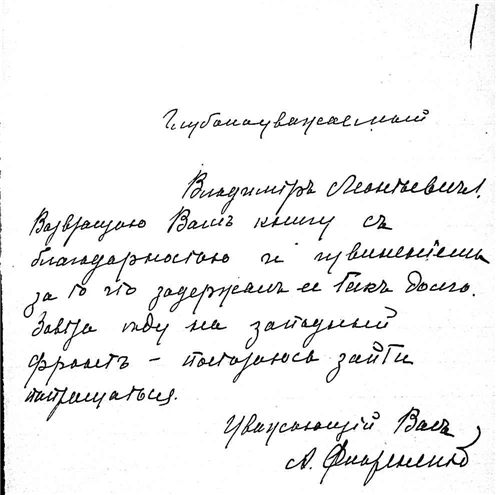 Глубокоуважаемый
Владимиръ Леонтьевичъ!
Возвращаю Вамъ книгу съ
благодарностью и извиненіемъ
за то что задержалъ ее такъ долго.
Завтра ѣду на западный
фронтъ – постараюсь зайти
попрощаться.
Уважающій Васъ
А.